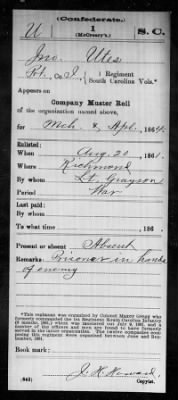 (Confederate.)
U 1 S.C.
(McCreary's.)
Jno. Utes
Pvt., Co. I, 1 Regiment
South Carolina Vols.*
Appears on
Company Muster Roll
of the organization named above,
for Mch. & Apl., 1864.
Enlisted:
When Aug. 20, 1861.
Where Richmond
By whom Lt. Grayson
Period War
Last paid:
By whom
To what time , 186 .
Present or absent Absent
Remarks: Prisoner in hands
of enemy
*This regiment was organized by Colonel Maxcy Gregg who
formerly commanded the 1st Regiment South Carolina Infantry
(6 months, 1861,) which was mustered out July 9, 1861, and a
number of the officers and men are found to have formerly
served in the latter organization. The twelve companies composing
this regiment were organized between June and September,
1861.
Book mark:
J. H. Howard
(642) Copyist.